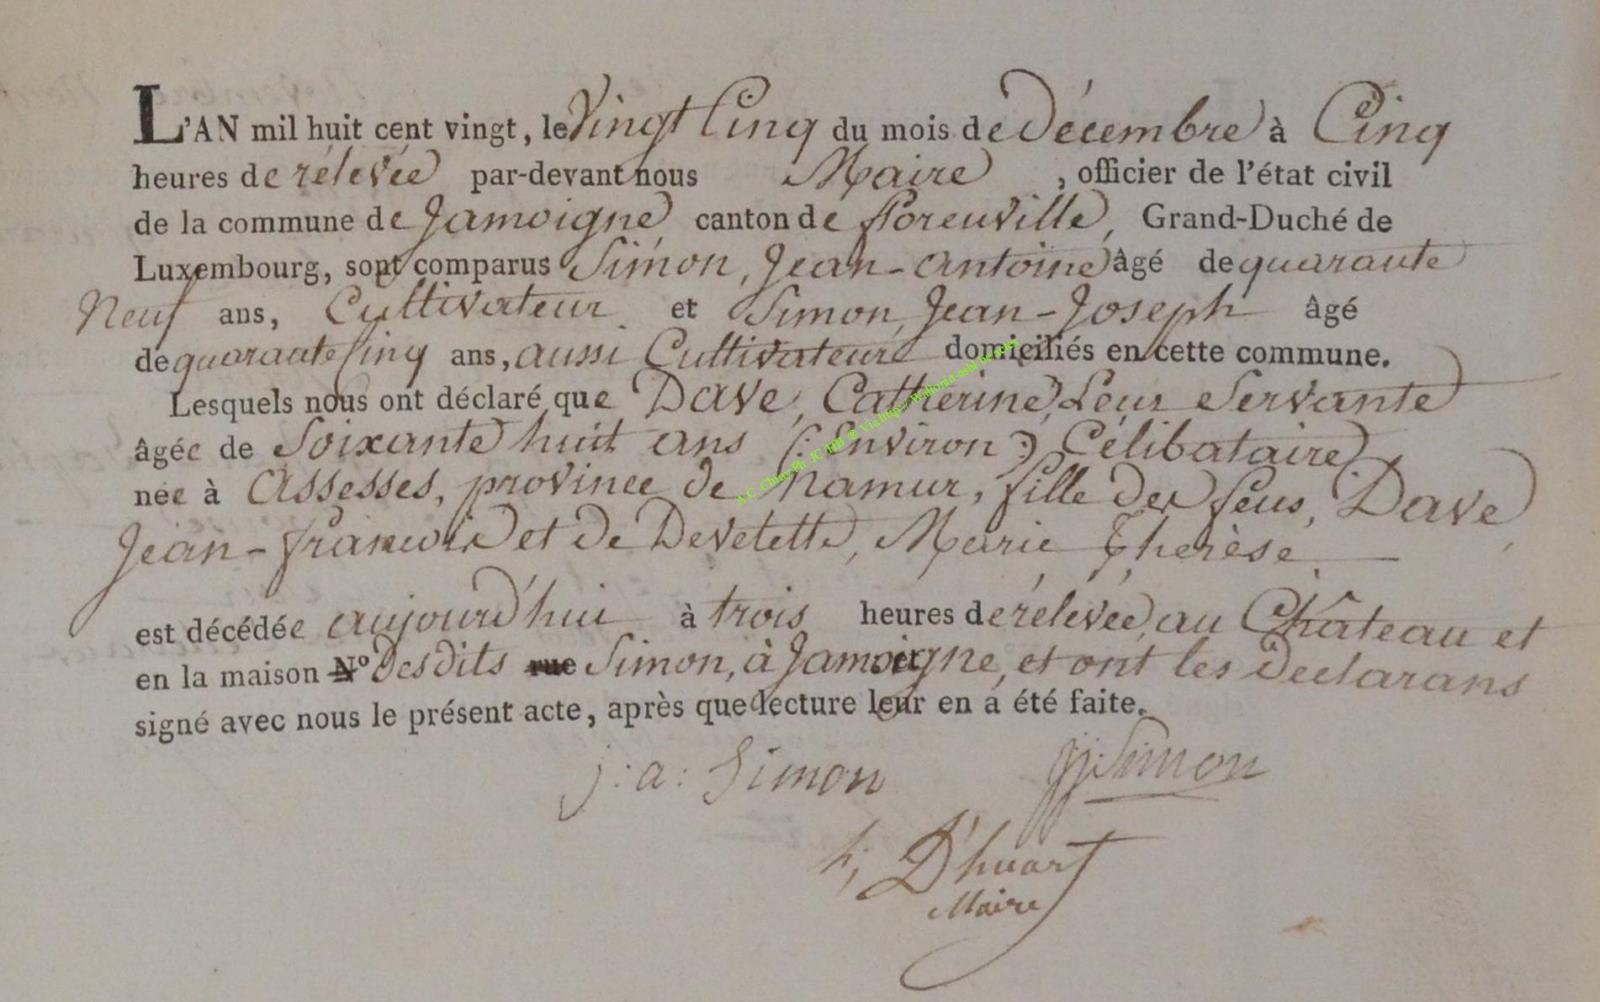 L'AN mil huit cent vingt, le Vingt Cinq du mois de décembre à Cinq
heures de rélevée par-devant nous Maire , officier de l'état civil
de la commune de Jamoigne canton de florenville, Grand-Duché de
Luxembourg, sont comparus Simon, Jean-Antoine âgé de quarante
Neuf ans, Cultivateur et Simon, Jean-Joseph âgé
de quarante Cinq ans, aussi Cultivateur domiciliés en cette commune.
Lesquels nous ont déclaré que Dave, Catherine, Leur Servante
âgée de Soixante huit ans (: Environ :) Célibataire,
née à Assesses, province de namur, fille des feus, Dave,
Jean-françois et de Develette, Marie Thérèse
est décédée aujourd'hui à trois heures de rélevée, au Château et
en la maison N.º Desdits rue Simon, à Jamoigne, et ont les Déclarans
signé avec nous le présent acte, après que lecture leur en a été faite.
j: a: Simon JJ Simon
D'huart
Maire